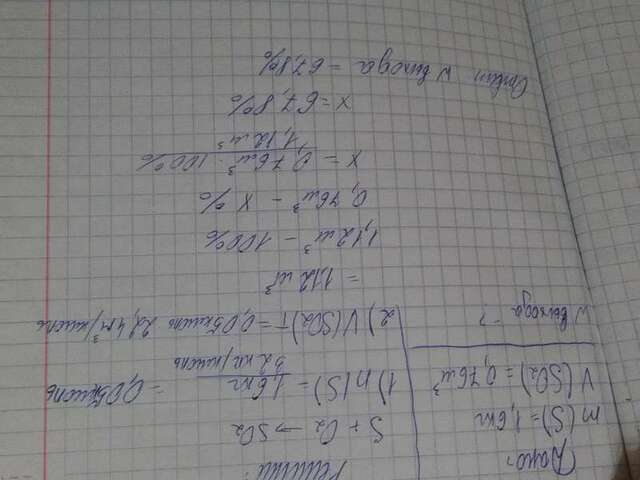 Дано:
m(S) = 1,6 кг
V(SO₂) = 0,76 м³
W выхода - ?
Решение:
S + O₂ → SO₂
1) n(S) = 1,6кг / 32 кг/кмоль = 0,05 кмоль
2) V(SO₂)т = 0,05 кмоль 22,4 м³/кмоль
= 1,12 м³
1,12 м³ - 100%
0,76 м³ - x %
x = 0,76 м³ · 100% / 1,12 м³
x = 67,8%
Ответ W выхода = 67,8%